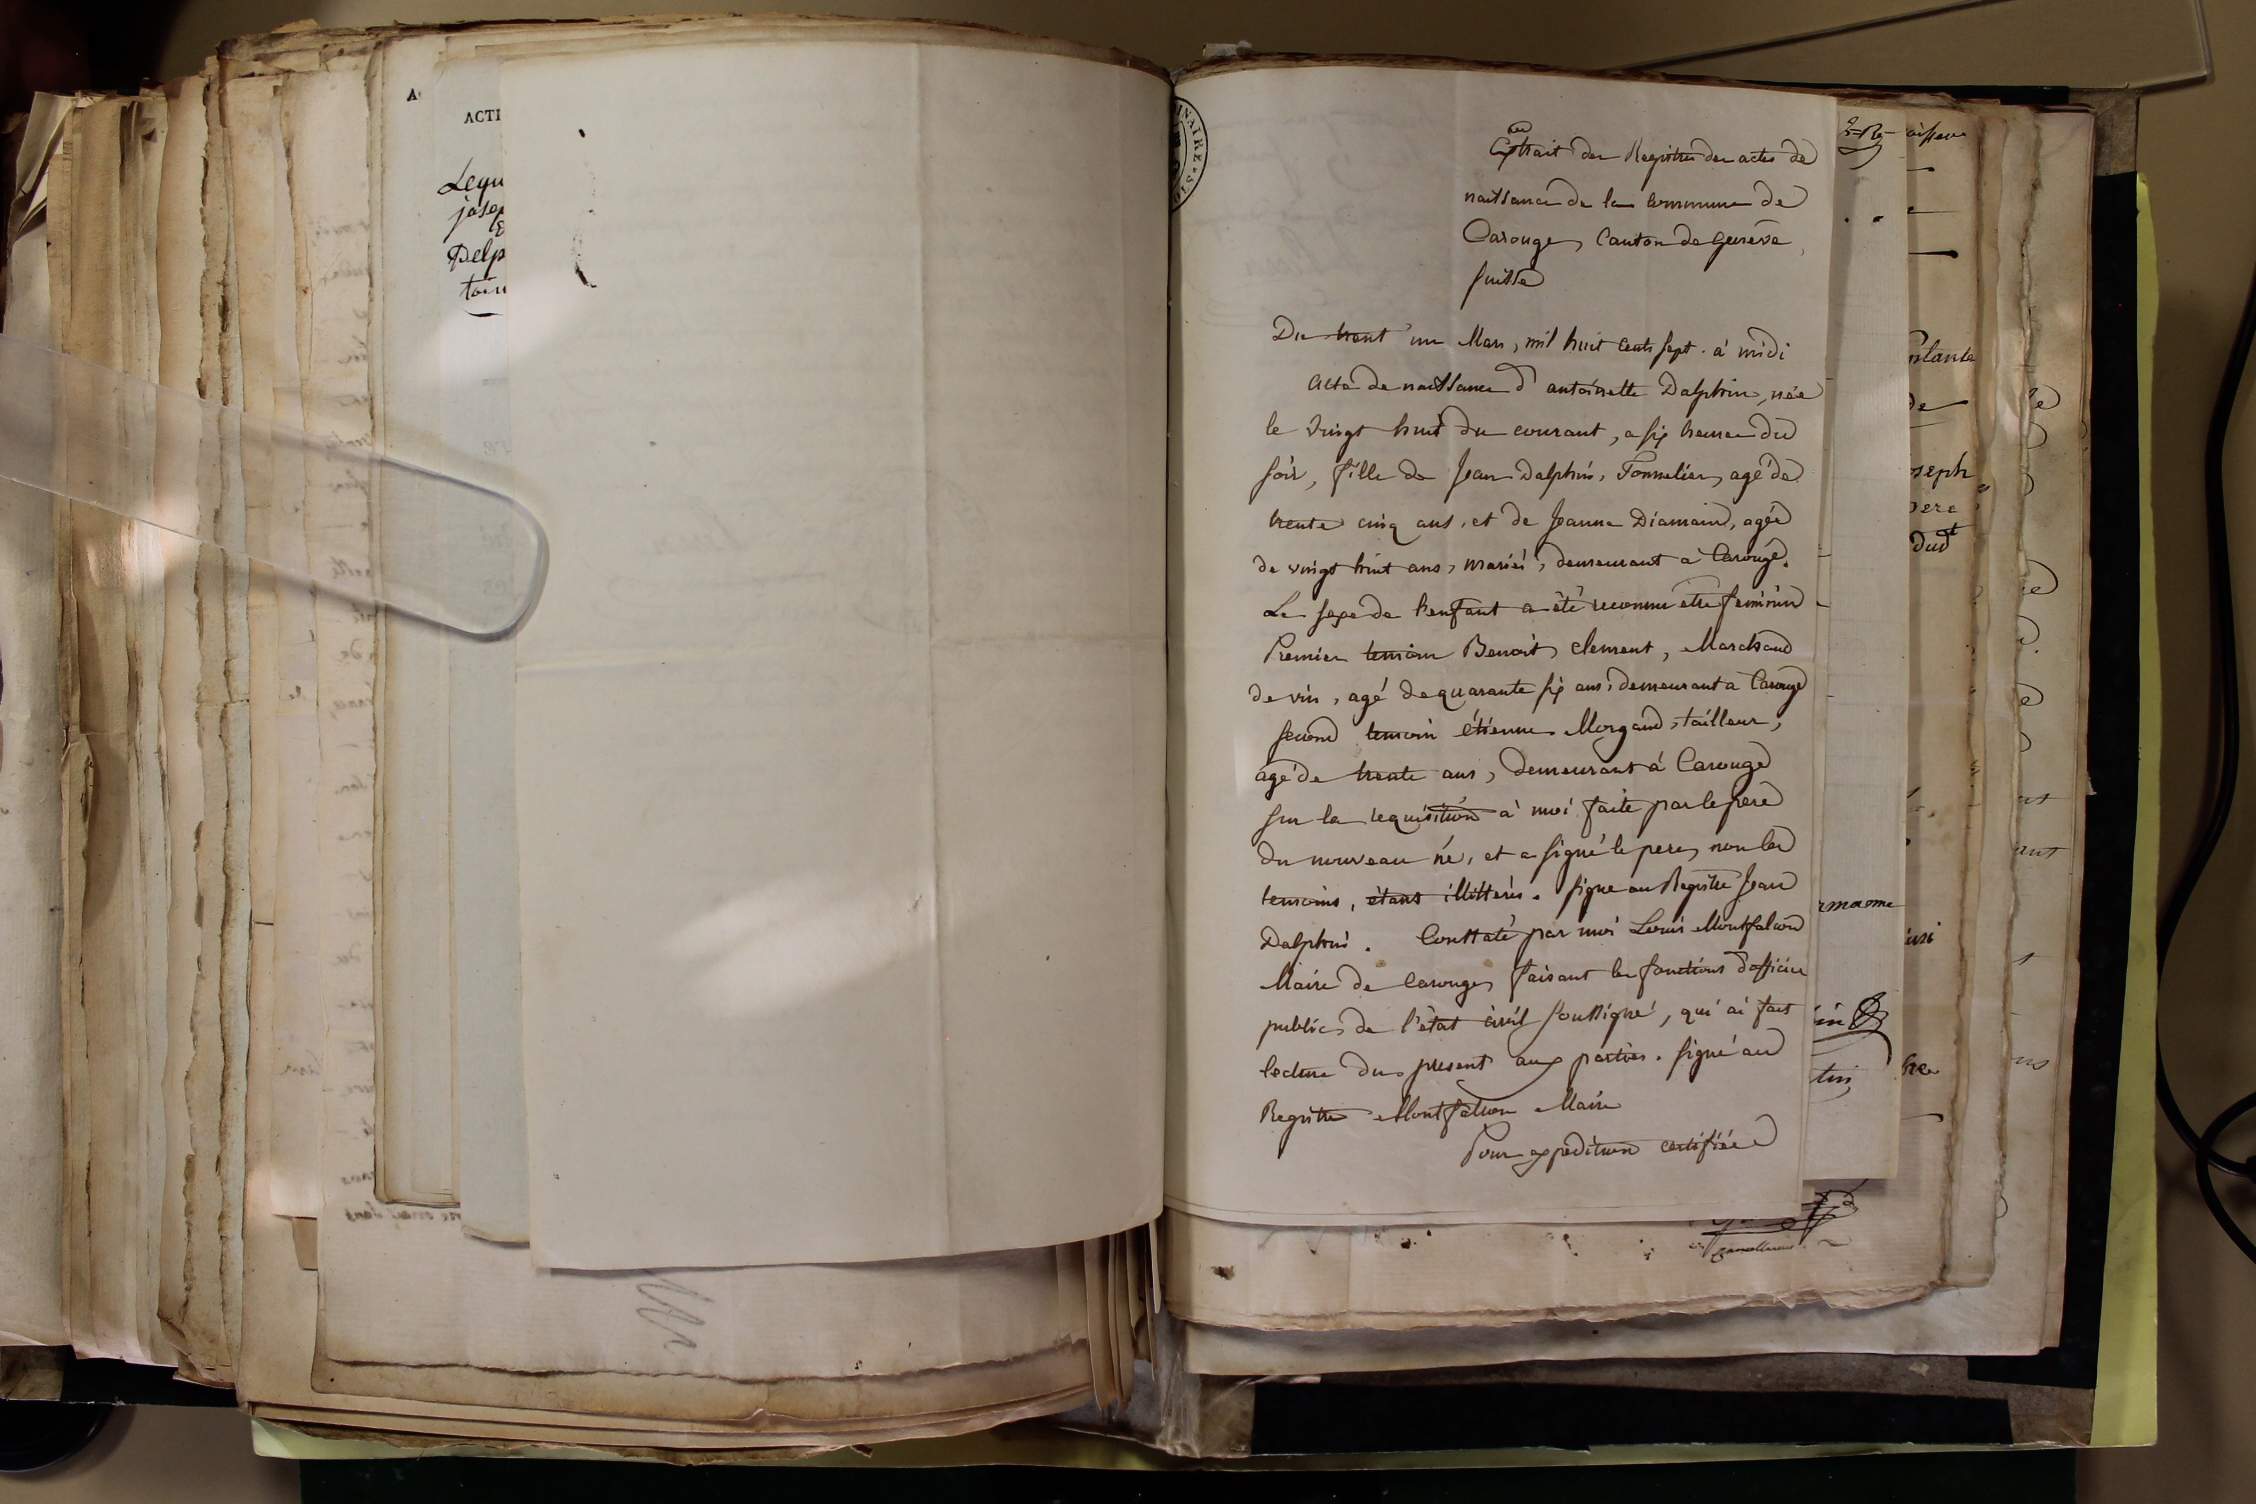 ACTI
Lequ
josep
Delp
Extrait des Registres des actes de
naissance de la Commune de
Carouge, Canton de Genève,
Suisse
Du trent'un Mars, mil huit cents sept. à midi
Acte de naissance d'antoinette Dalphin, née
le vingt huit du courant, a six heures du
soir, fille de Jean Dalphin, Tonnelier, agé de
trente cinq ans, et de Jeanne Diamand, agée
de vingt huit ans, mariés, demeurant à Carouge.
Le sexe de l'enfant a été reconnu être feminin
Premier temoin Benoit Clement, Marchand
de vin, agé de quarante six ans, demeurant a Carouge
second temoin étienne Morgand, tailleur,
agé de trente ans, demeurant à Carouge
sur la requisition à moi faite par le pere
du nouveau né, et a signé le pere, non les
temoins, étant illitterés. signé au Registre Jean
Dalphin. Constaté par moi Louis Montfalcon
Maire de Carouge, faisant les fonctions d'officier
public de l'état civil soussigné, qui ai fait
lecture du present aux parties. signé au
Registre Montfalcon Maire
Pour expedition certifiée